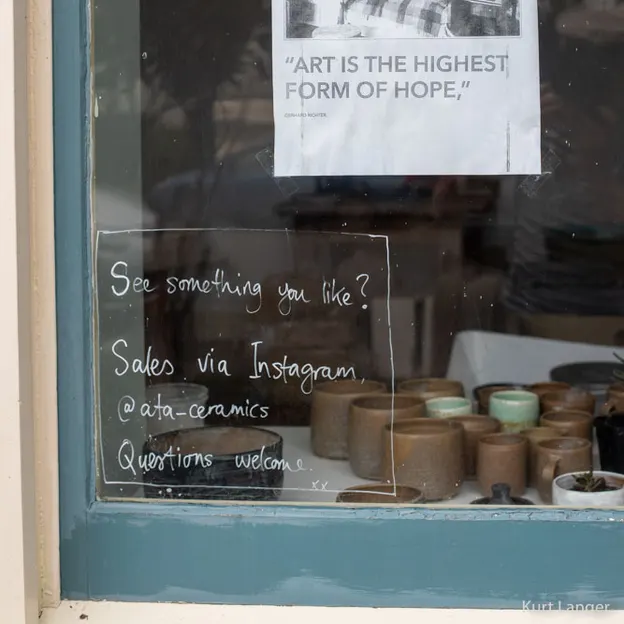 “ART IS THE HIGHEST
FORM OF HOPE,”
GERHARD RICHTER
See something you like?
Sales via Instagram,
@ata-ceramics
Questions welcome.
xx
Kurt Langer